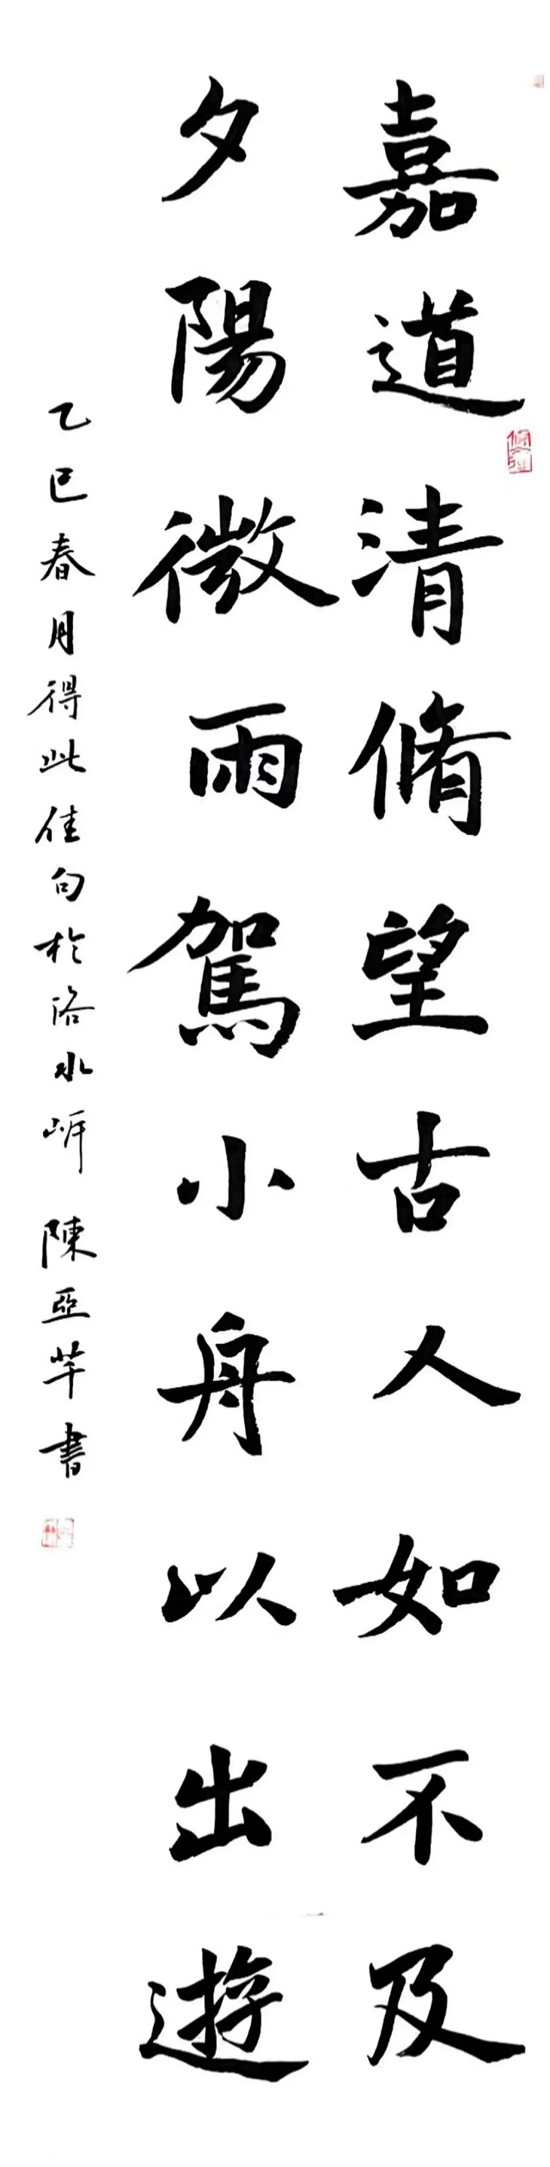 嘉道清脩望古人如不及
夕陽微雨駕小舟以出遊
乙巳春月得此佳句於洛水岸 陳亞芊書